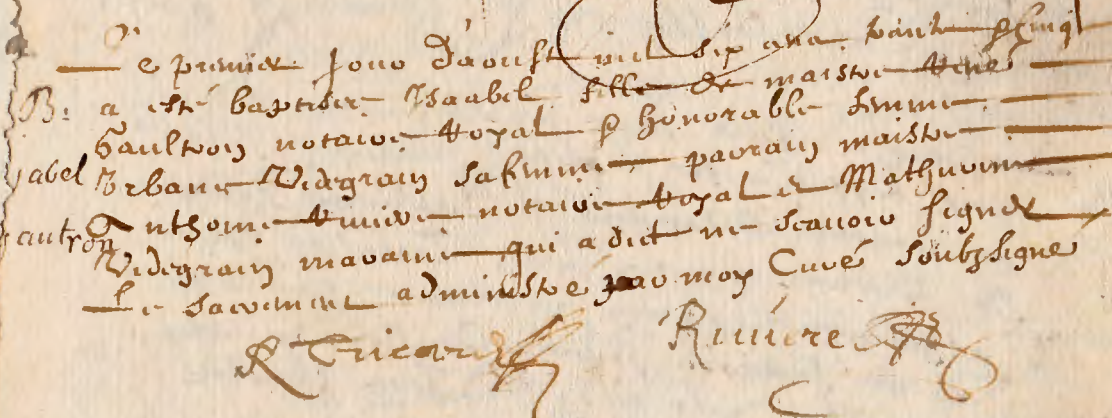 Le premier Jour d'aoust mil six cens vaint & cinq
B: a esté baptisée Isaabel fille de maistre René
Gaultron notaire Royal & honorable femme
Urbane Videgrain sa femme parrain maistre
yabel
Anthoine Riviere notaire Royal & Mathurine
gautron
Videgrain maraine qui a dict ne scavoir signer
Le sacrement administré par moy Curé soubzsigné
R Tricard Riviere